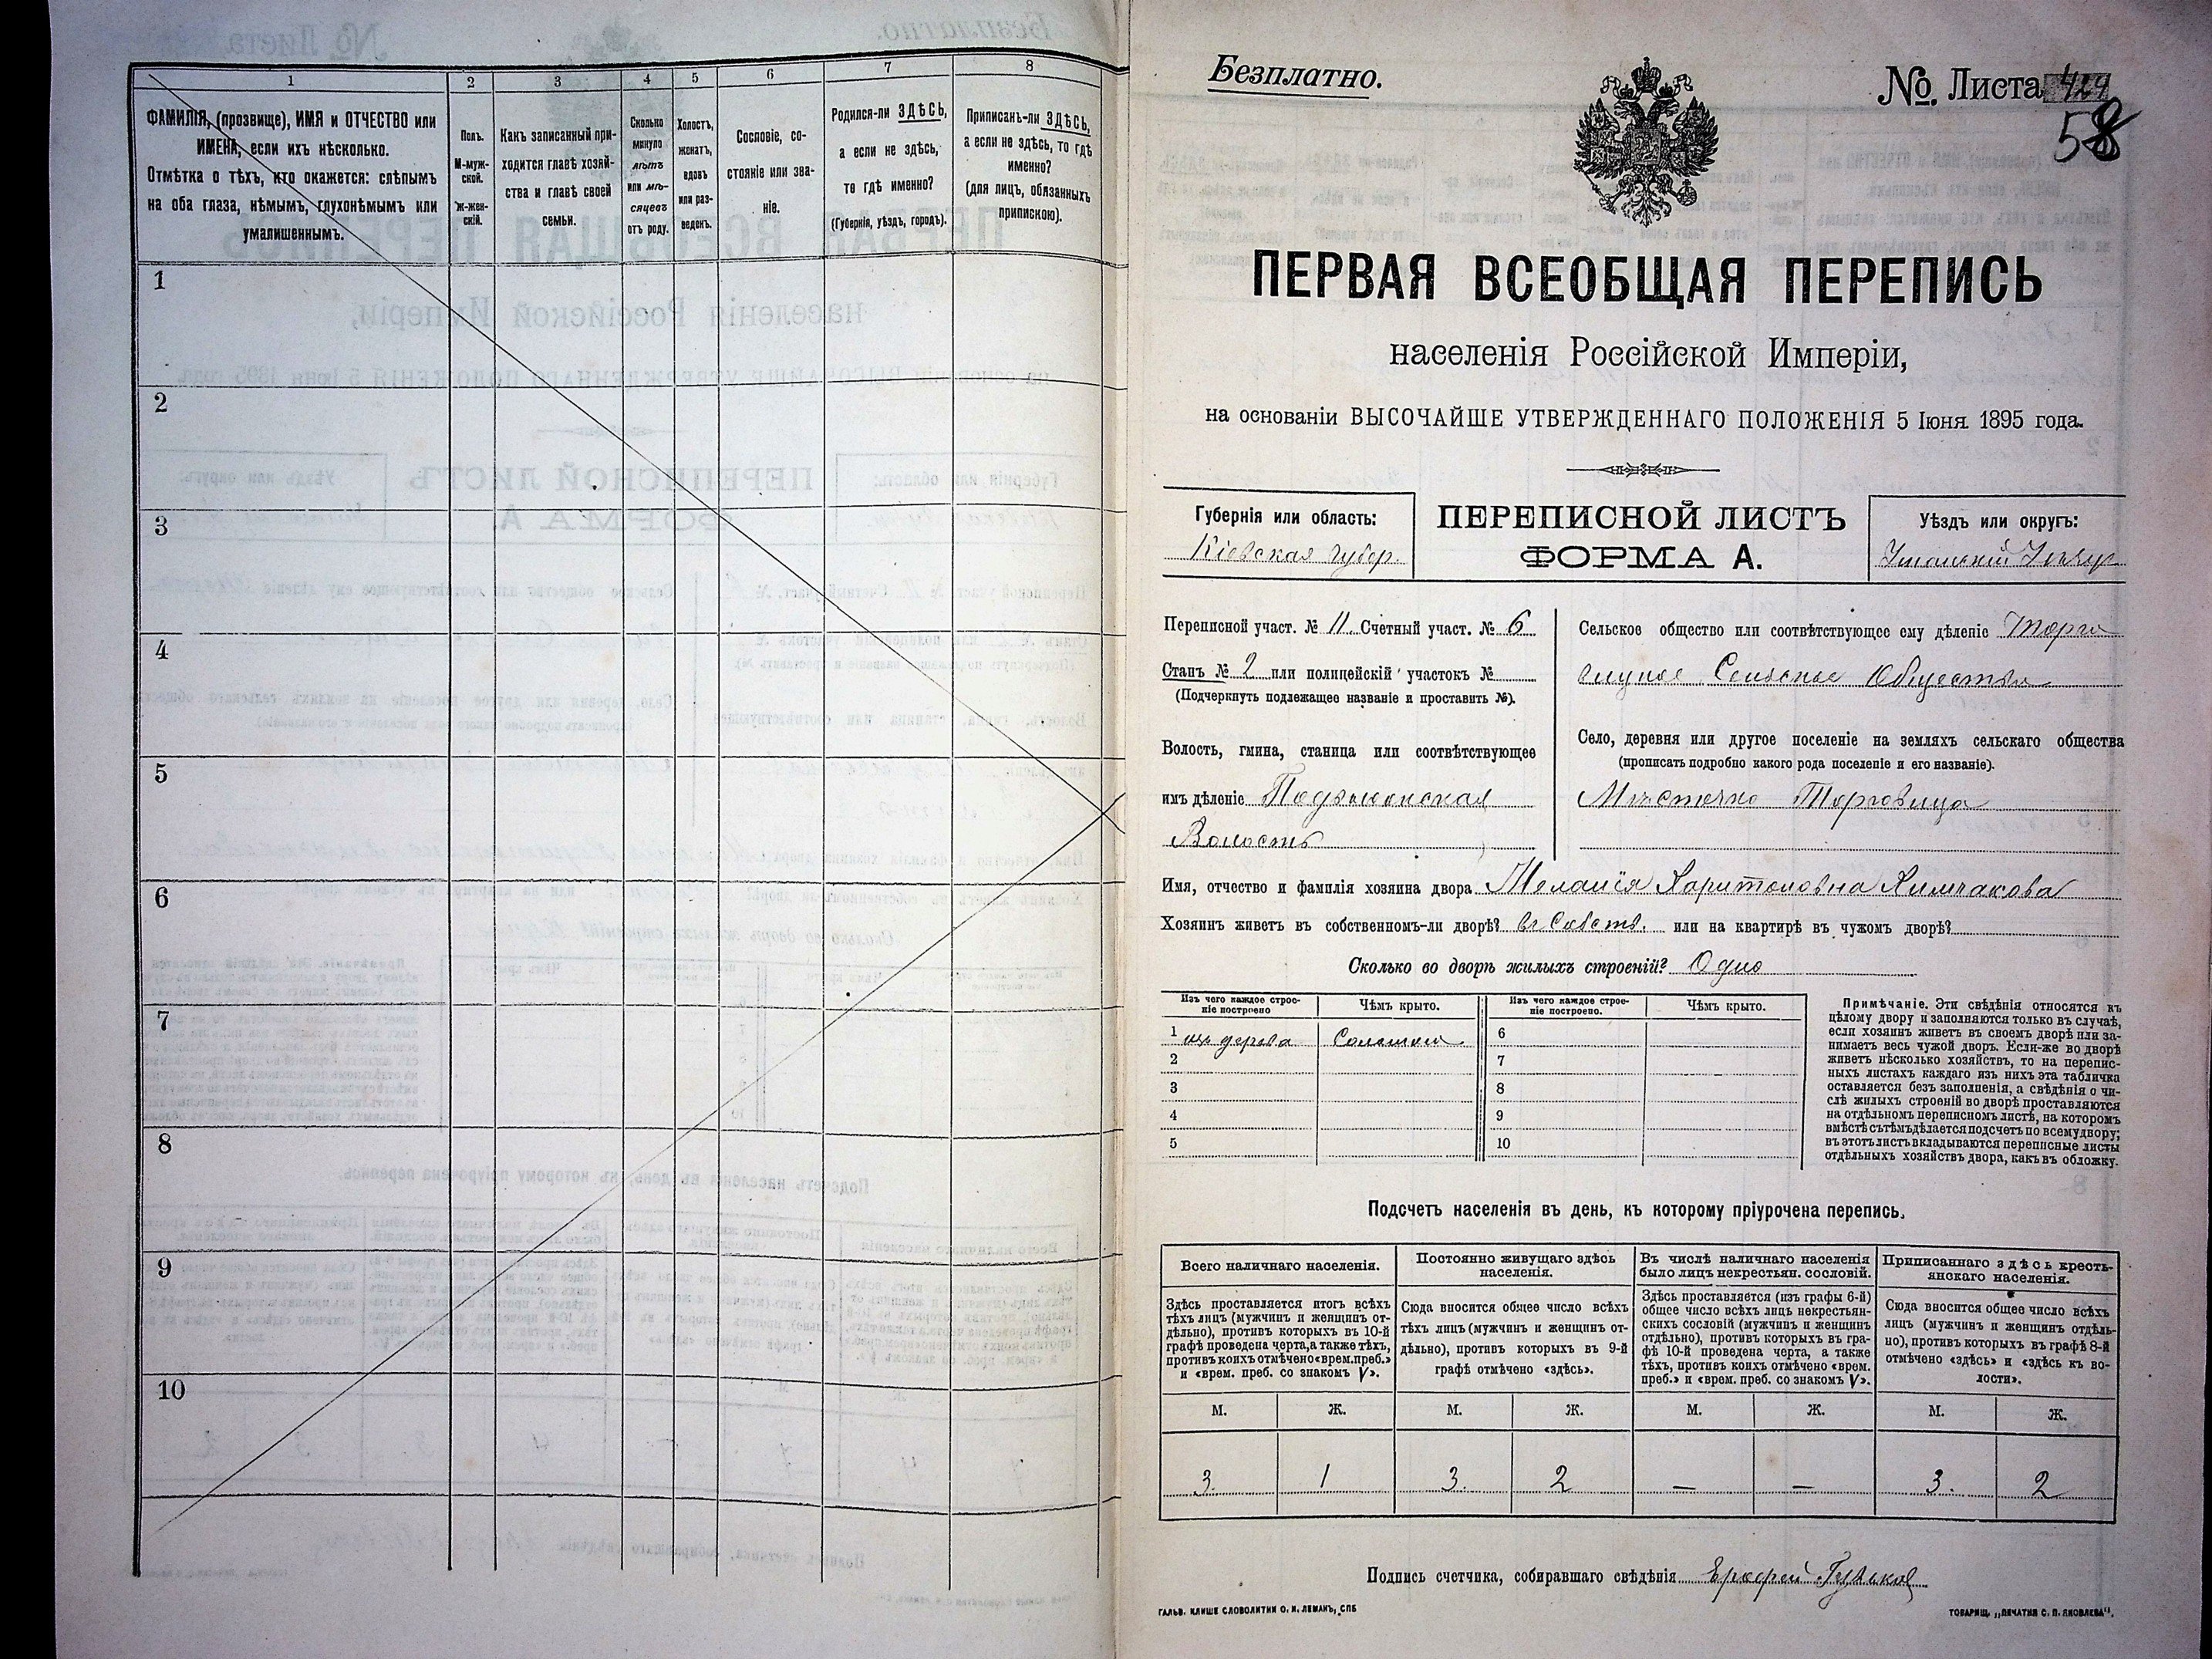 1 2 3 4 5 6 7 8
ФАМИЛІЯ, (прозвище), ИМЯ и ОТЧЕСТВО или
ИМЕНА, если ихъ нѣсколько.
Отмѣтка о тѣхъ, кто окажется: слѣпымъ
на оба глаза, нѣмымъ, глухонѣмымъ или
умалишеннымъ.
Полъ.
М-муж-
ской.
Ж-жен-
скій.
Какъ записанный при-
ходится главѣ хозяй-
ства и главѣ своей
семьи.
Сколько
минуло
лѣтъ
или мѣ-
сяцевъ
отъ роду.
Холостъ,
женатъ,
вдовъ
или раз-
веденъ.
Сословіе, со-
стояніе или зва-
ніе.
Родился-ли ЗДѢСЬ,
а если не здѣсь,
то гдѣ именно?
(Губернія, уѣздъ, городъ).
Приписанъ-ли ЗДѢСЬ,
а если не здѣсь, то гдѣ
именно?
(для лицъ, обязанныхъ
припискою).
1
2
3
4
5
6
7
8
9
10
Безплатно.
№ Листа 424
58
ПЕРВАЯ ВСЕОБЩАЯ ПЕРЕПИСЬ
населенія Россійской Имперіи,
на основаніи ВЫСОЧАЙШЕ УТВЕРЖДЕННАГО ПОЛОЖЕНІЯ 5 Іюня 1895 года.
Губернія или область:
Кіевская губер.
ПЕРЕПИСНОЙ ЛИСТЪ
ФОРМА А.
Уѣздъ или округъ:
Уманскій Уѣзд
Переписной участ. № 11 Счетный участ. № 6
Станъ № 2 или полицейскій участокъ №
(Подчеркнуть подлежащее названіе и проставить №).
Волость, гмина, станица или соотвѣтствующее
имъ дѣленіе Подвысоцкая
Волость
Сельское общество или соотвѣтствующее ему дѣленіе Торго
вицкое Сельское Общество
Село, деревня или другое поселеніе на земляхъ сельскаго общества
(прописать подробно какого рода поселеніе и его названіе).
Мѣстечко Торговица
Имя, отчество и фамилія хозяина двора Меланія Харитоновна
Хозяинъ живетъ въ собственномъ-ли дворѣ? въ Собств. или на квартирѣ въ чужомъ дворѣ?
Сколько во дворѣ жилыхъ строеній? Одно
Изъ чего каждое строе-
ніе построено
Чѣмъ крыто.
Изъ чего каждое строе-
ніе построено.
Чѣмъ крыто.
1 изъ дерева Соломою 6
2 7
3 8
4 9
5 10
Примѣчаніе. Эти свѣдѣнія относятся къ
цѣлому двору и заполняются только въ случаѣ,
если хозяинъ живетъ въ своемъ дворѣ или за-
нимаетъ весь чужой дворъ. Если-же во дворѣ
живетъ нѣсколько хозяйствъ, то на перепис-
ныхъ листахъ каждаго изъ нихъ эта табличка
оставляется безъ заполненія, а свѣдѣнія о чи-
слѣ жилыхъ строеній во дворѣ проставляются
на отдѣльномъ переписномъ листѣ, на которомъ
вмѣстѣ съ тѣмъ дѣлается подсчетъ по всему двору;
въ этотъ листъ вкладываются переписные листы
отдѣльныхъ хозяйствъ двора, какъ въ обложку.
Подсчетъ населенія въ день, къ которому пріурочена перепись.
Всего наличнаго населенія.
Здѣсь проставляется итогъ всѣхъ
тѣхъ лицъ (мужчинъ и женщинъ от-
дѣльно), противъ которыхъ въ 10-й
графѣ проведена черта, а также тѣхъ,
противъ коихъ отмѣчено «врем. преб.»
и «врем. преб. со знакомъ V».
Постоянно живущаго здѣсь
населенія.
Сюда вносится общее число всѣхъ
тѣхъ лицъ (мужчинъ и женщинъ от-
дѣльно), противъ которыхъ въ 9-й
графѣ отмѣчено «здѣсь».
Въ числѣ наличнаго населенія
было лицъ некрестьян. сословій.
Здѣсь проставляется (изъ графы 6-й)
общее число всѣхъ лицъ некрестьян-
скихъ сословій (мужчинъ и женщинъ
отдѣльно), противъ которыхъ въ гра-
фѣ 10-й проведена черта, а также
тѣхъ, противъ коихъ отмѣчено «врем.
преб.» и «врем. преб. со знакомъ V».
Приписаннаго здѣсь кресть-
янскаго населенія.
Сюда вносится общее число всѣхъ
лицъ (мужчинъ и женщинъ отдѣль-
но), противъ которыхъ въ графѣ 8-й
отмѣчено «здѣсь» и «здѣсь къ во-
лости».
М. Ж. М. Ж. М. Ж. М. Ж.
3. 1 3. 2 — — 3. 2
Подпись счетчика, собиравшаго свѣдѣнія Ерофей
ГАЛЬВ. КЛИШЕ СЛОВОЛИТНИ О. И. ЛЕМАНЪ, СПБ
ТОВАРИЩ. „ПЕЧАТНЯ С. П. ЯКОВЛЕВА".